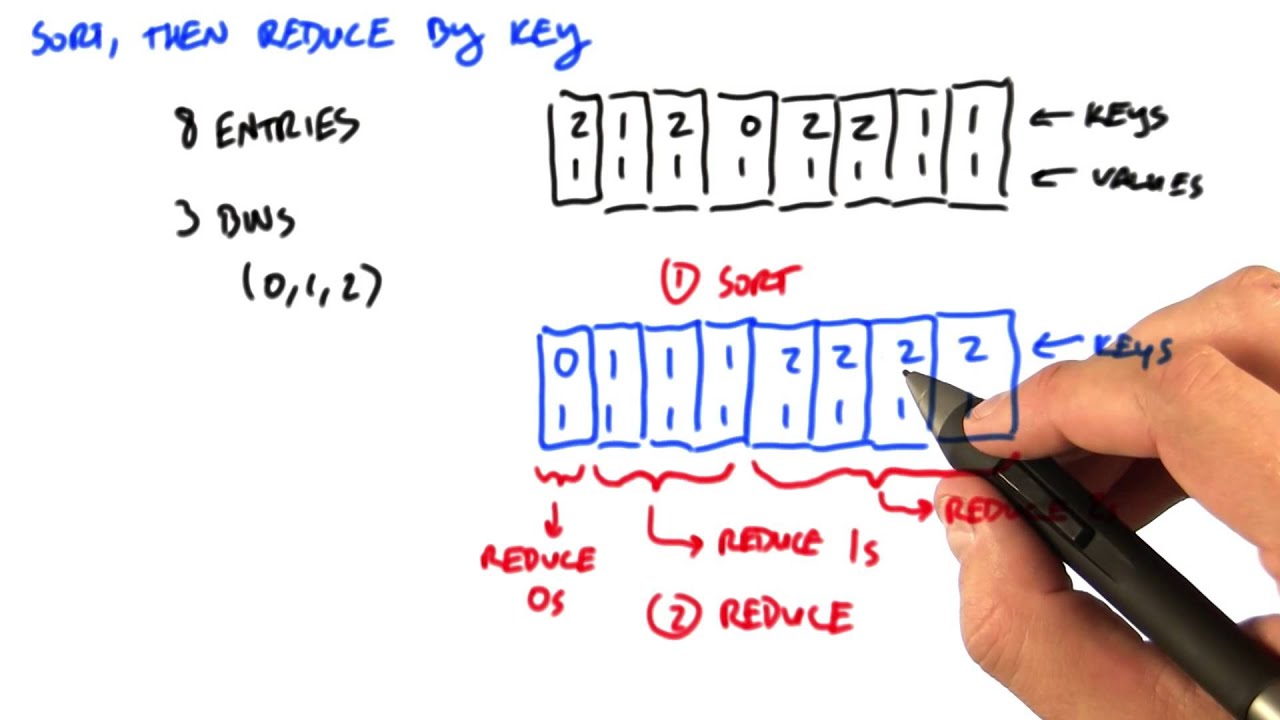 SORT, THEN REDUCE BY KEY
8 ENTRIES
3 BINS
(0,1,2)
2 1 2 0 2 2 1 1 ← KEYS
1 1 1 1 1 1 1 1 ← VALUES
① SORT
0 1 1 1 2 2 2 2 ← KEYS
1 1 1 1 1 1 1 1
REDUCE
0s
REDUCE 1s
REDUCE
② REDUCE